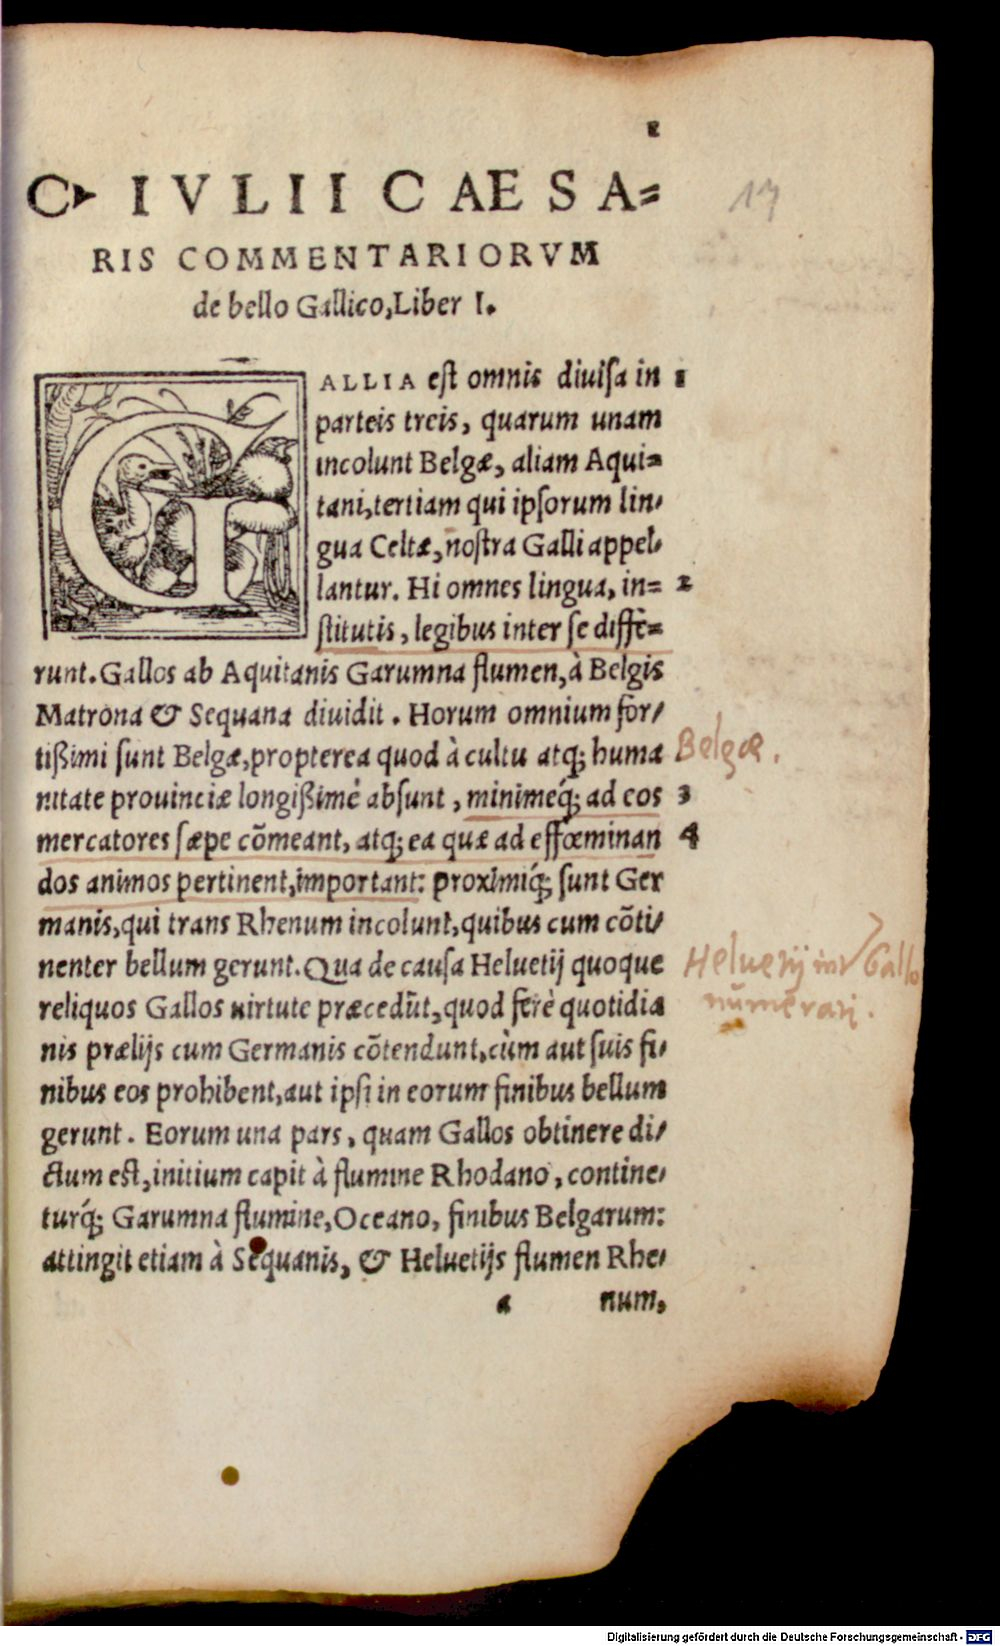 1
C. IVLII CAESA=
17
RIS COMMENTARIORVM
de bello Gallico, Liber I.
GALLIA est omnis diuisa in 1
parteis treis, quarum unam
incolunt Belgæ, aliam Aqui=
tani, tertiam qui ipsorum lin-
gua Celtæ, nostra Galli appel-
lantur. Hi omnes lingua, in= 2
stitutis, legibus inter se diffe=
runt. Gallos ab Aquitanis Garumna flumen, à Belgis
Matrona & Sequana diuidit. Horum omnium for-
tißimi sunt Belgæ, propterea quod à cultu atq; huma
Belgæ.
nitate prouinciæ longißimè absunt, minimeq́; ad eos 3
mercatores sæpe cõmeant, atq; ea quæ ad effœminan 4
dos animos pertinent, important: proximiq́; sunt Ger
manis, qui trans Rhenum incolunt, quibus cum cõti-
nenter bellum gerunt. Qua de causa Heluetij quoque
Heluetij int Gallo
reliquos Gallos uirtute præcedũt, quod ferè quotidia
numerari.
nis prælijs cum Germanis cõtendunt, cùm aut suis fi-
nibus eos prohibent, aut ipsi in eorum finibus bellum
gerunt. Eorum una pars, quam Gallos obtinere di-
ctum est, initium capit à flumine Rhodano, contine-
turq́; Garumna flumine, Oceano, finibus Belgarum:
attingit etiam à Sequanis, & Heluetijs flumen Rhe-
a num,
Digitalisierung gefördert durch die Deutsche Forschungsgemeinschaft - DFG